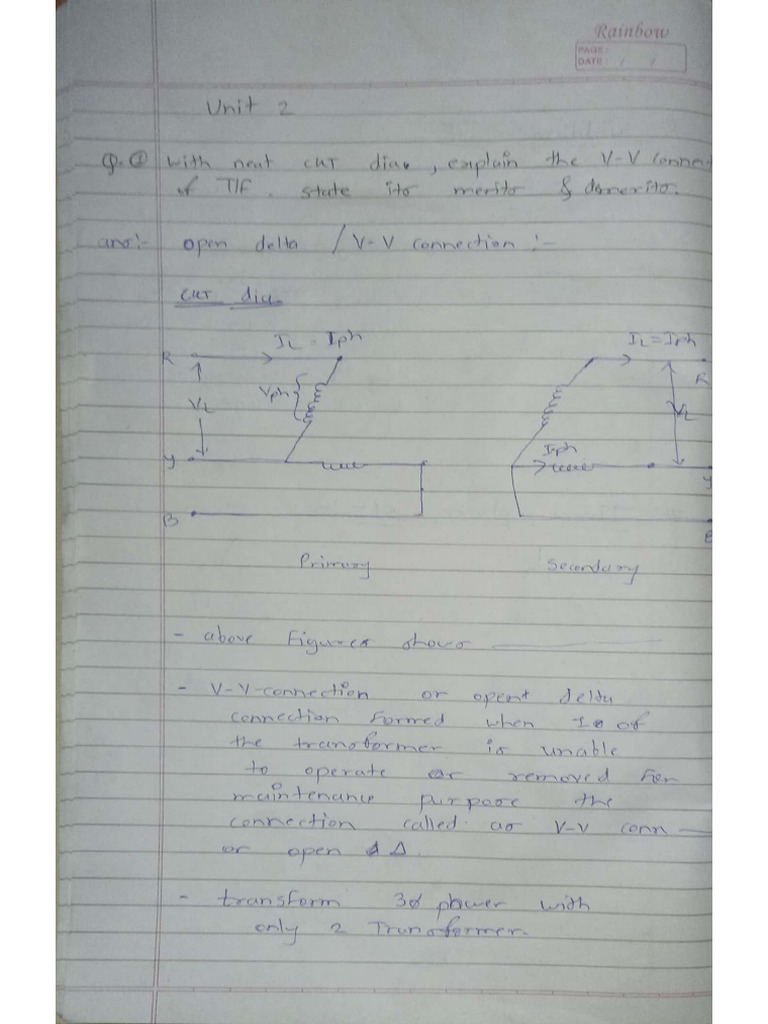 Rainbow
PAGE:
DATE: / /
Unit 2
Q.① with neat CKT dia., explain the V-V connect
of T/F. state its merits & demerits.
ans:- open delta / V-V connection :-
CKT dia.
IL = Iph
IL = Iph
R
R
Vph
VL
VL
Iph
Y
Y
B
B
Primary
Secondary
- above Figures shows
- V-V-connection or open delta
connection formed when 1 of
the transformer is unable
to operate or removed for
maintenance purpose the
connection called as V-V conn
or open Δ.
- transform 3ø power with
only 2 Transformer.